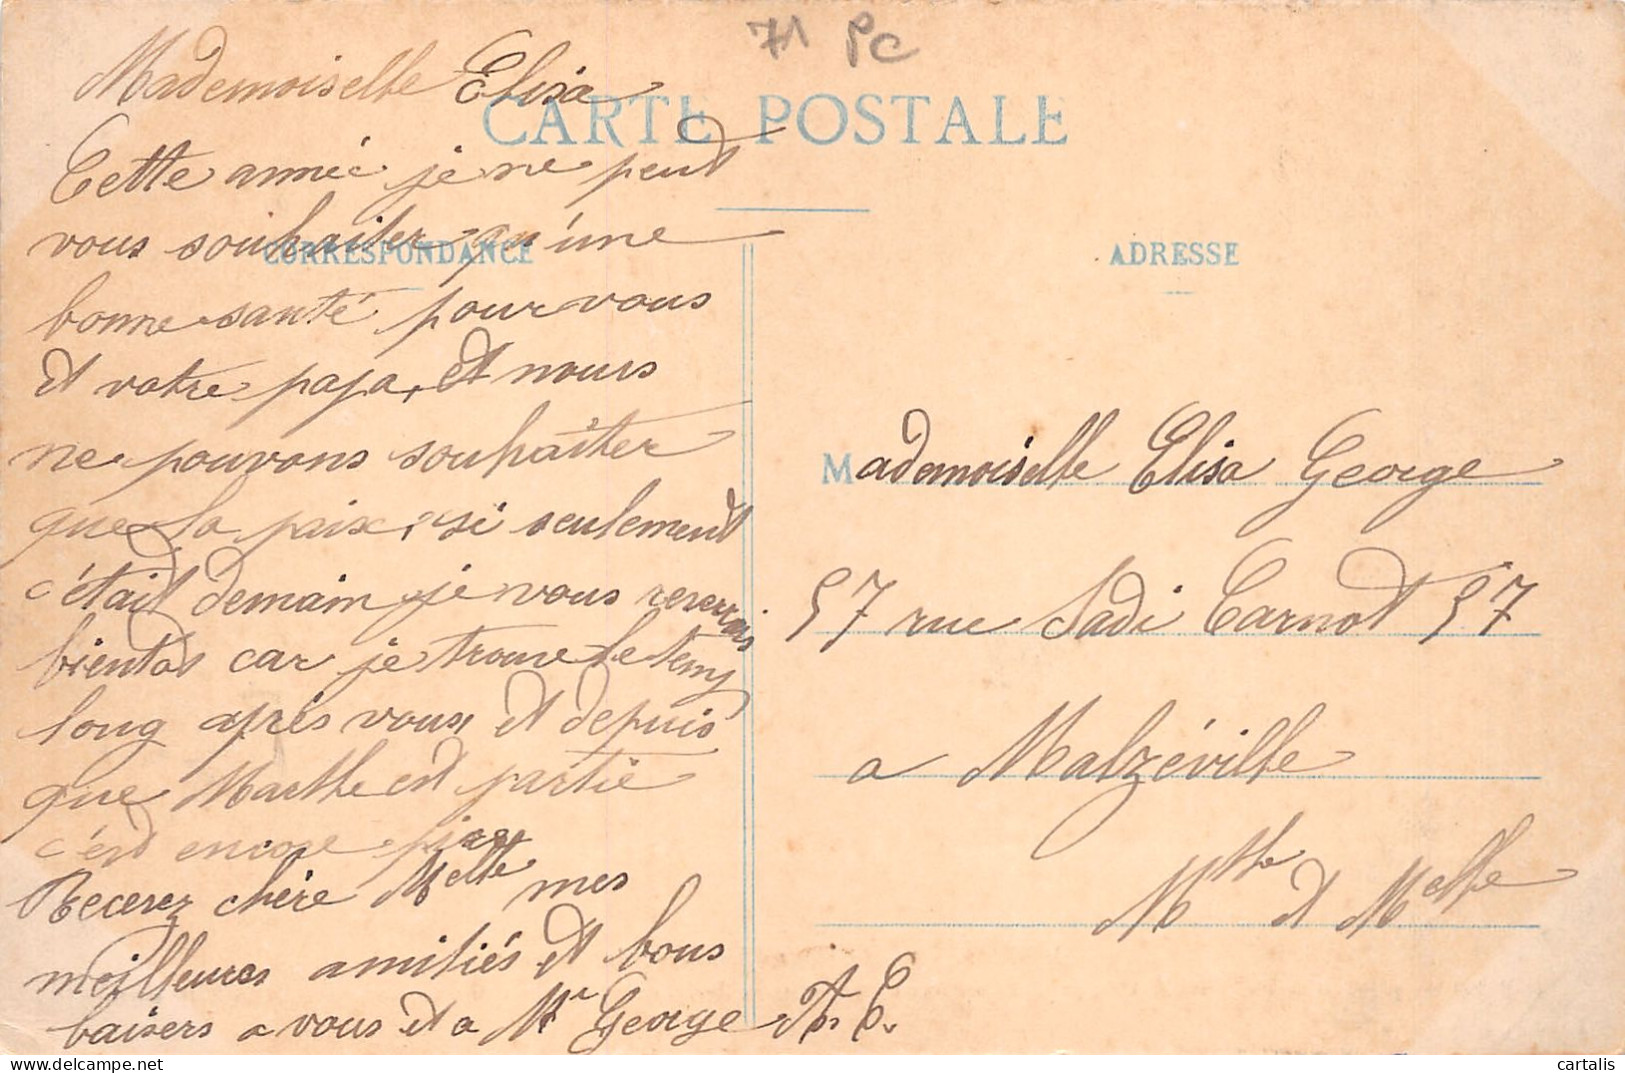 71 PC
CARTE POSTALE
CORRESPONDANCE
Mademoiselle Elisa
Cette année je ne peut
vous souhaiter qu'une
bonne santé pour vous
et votre papa, et nous
ne pouvons souhaiter
que la paix, si seulement
c'était demain je vous reverrais
bientot car je trouve le temps
long après vous, et depuis
que Marthe est partie
c'est encore pire
Recevez chère Melle mes
meilleures amitiés et bons
baisers a vous et a Mr George
A. C.
ADRESSE
Mademoiselle Elisa George
57 rue Sadi Carnot 57
a Malzéville
Mthe et Melle
cartalis